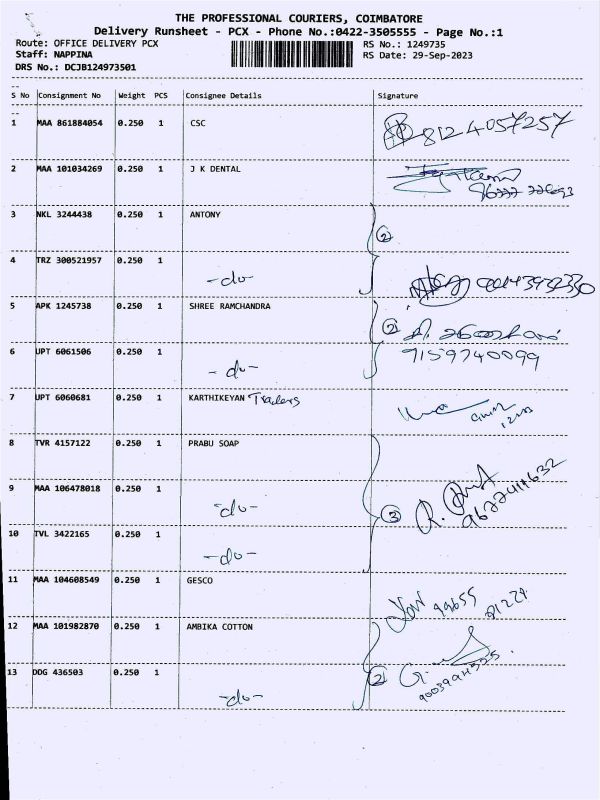 THE PROFESSIONAL COURIERS, COIMBATORE
Delivery Runsheet - PCX - Phone No.:0422-3505555 - Page No.:1
Route: OFFICE DELIVERY PCX RS No.: 1249735
Staff: NAPPINA RS Date: 29-Sep-2023
DRS No.: DCJB124973501
S No Consignment No Weight PCS Consignee Details Signature
1 MAA 861884054 0.250 1 CSC 8124057257
2 MAA 101034269 0.250 1 J K DENTAL
3 NKL 3244438 0.250 1 ANTONY 2
4 TRZ 300521957 0.250 1 -do-
5 APK 1245738 0.250 1 SHREE RAMCHANDRA 2
6 UPT 6061506 0.250 1 -do- 9159740099
7 UPT 6060681 0.250 1 KARTHIKEYAN Traders
8 TVR 4157122 0.250 1 PRABU SOAP
9 MAA 106478018 0.250 1 -do- 3
10 TVL 3422165 0.250 1 -do-
11 MAA 104608549 0.250 1 GESCO
12 MAA 101982870 0.250 1 AMBIKA COTTON
13 DDG 436503 0.250 1 -do- 2